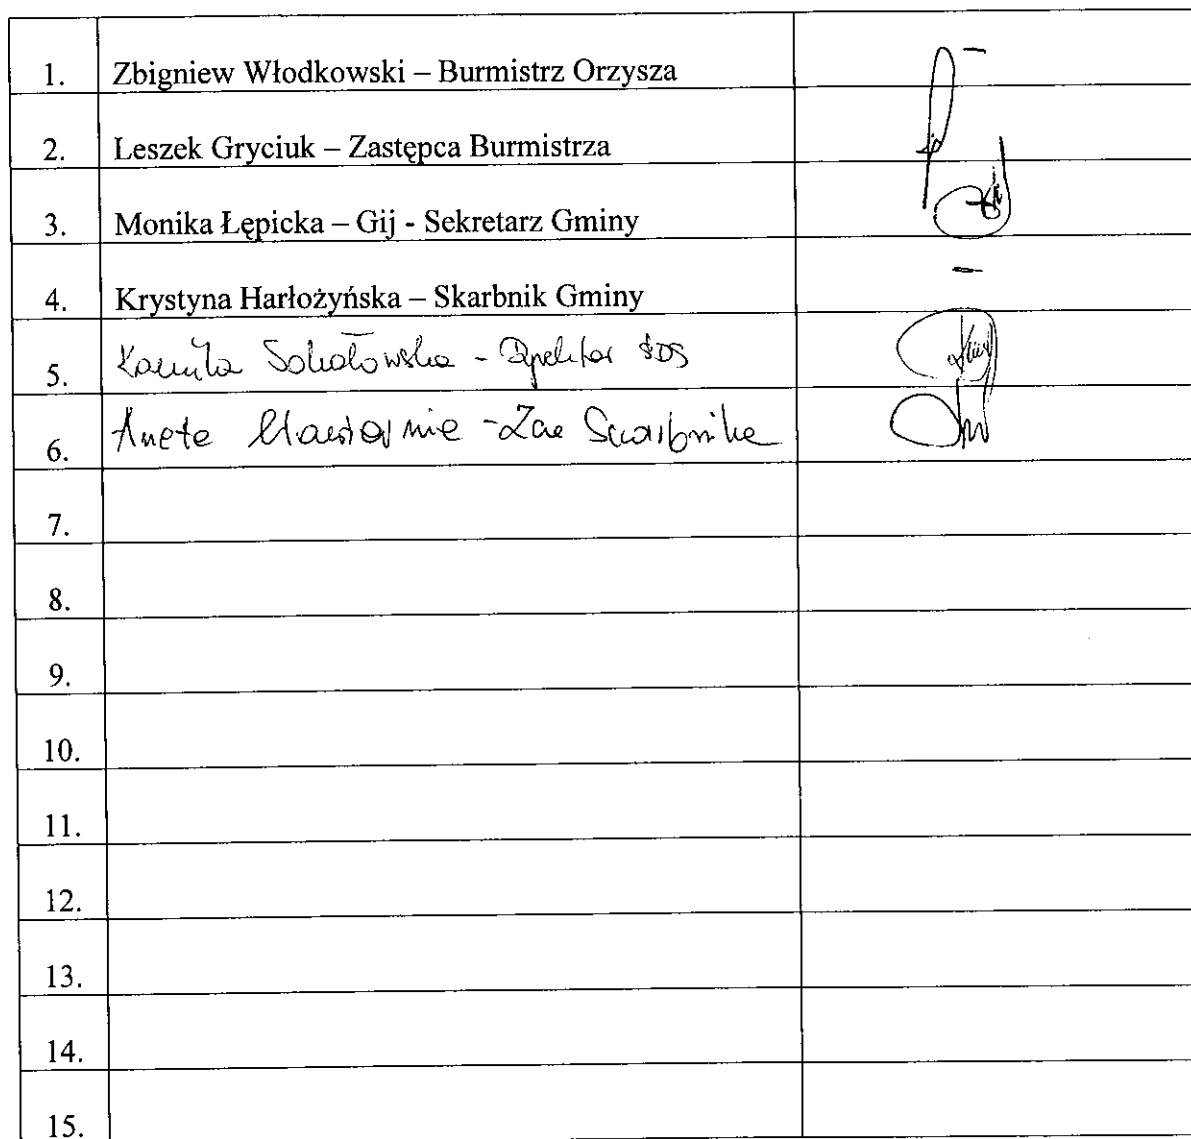 1. Zbigniew Włodkowski – Burmistrz Orzysza –
2. Leszek Gryciuk – Zastępca Burmistrza
3. Monika Łępicka – Gij - Sekretarz Gminy
4. Krystyna Harłożyńska – Skarbnik Gminy –
5. Kamila Sokołowska - Dyrektor ŚDS
6. Aneta - Z-ca Skarbnika
7.
8.
9.
10.
11.
12.
13.
14.
15.